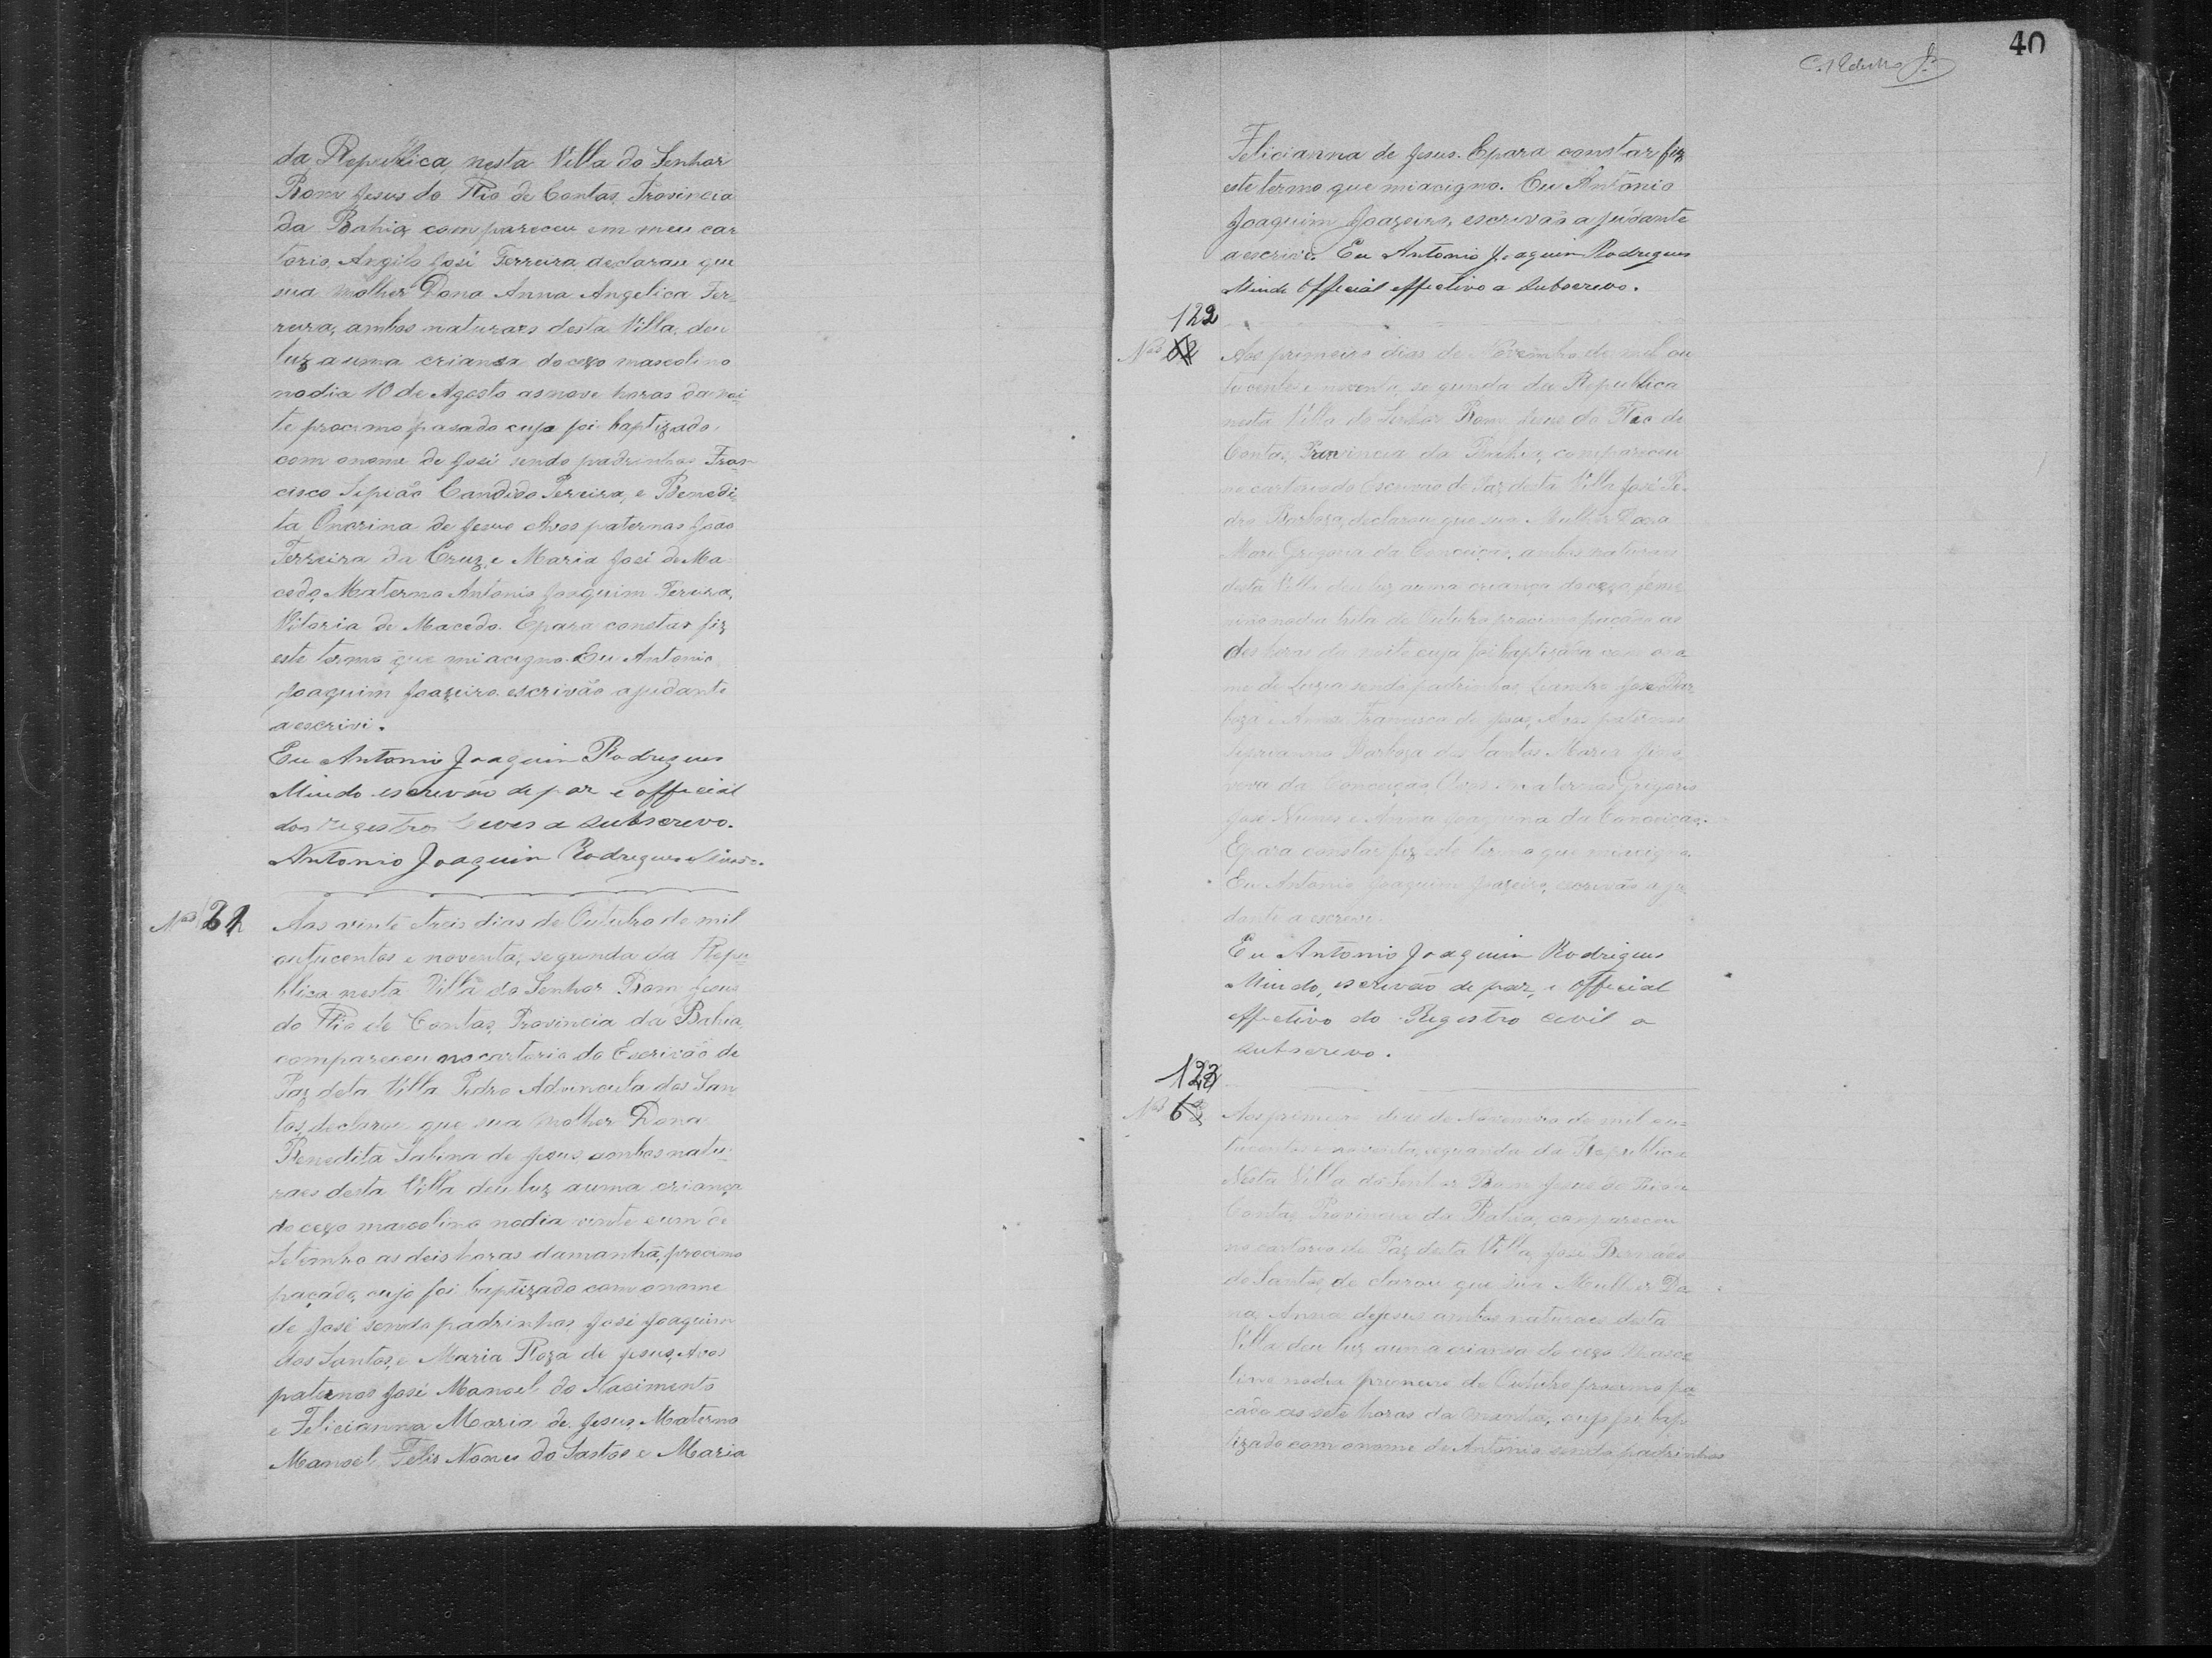 da Republica, nesta Villa do Senhor
Bom Jesus do Rio de Contas, Provincia
da Bahia, compareceu em meu car
torio, Angelo José Ferreira declarau que
sua molher Dona Anna Angelica Fer-
reira, ambos naturaes desta Villa, deu
luz a uma crianza do cexo mascolino
no dia 10 de Agosto as nove horas da noi
te procimo pasado cujo foi baptizado,
com o nome de José sendo padrinhos Fran
cisco Sipião Candido Pereira, e Benedi
ta Onorina de Jesus Avos paternas João
Ferreira da Cruz, e Maria José de Ma
cedo, Materno Antonio Joaquim Pereira,
Vitoria de Macedo. E para constar fiz
este termo que mi acigno. Eu Antonio
Joaquim Joazeiro escrivão ajudante
a escrivi.
Eu Antonio Joaquim Rodrigues
Mindo escrivão de paz e official
dos registros Civis a subscrevo.
Antonio Joaquim Rodrigues
Nos 21
Aos vinte e treis dias de Outubro de mil
outucentos e noventa, segunda da Repu
blica nesta Villa do Senhor Bom Jesus
do Rio de Contas, Provincia da Bahia
compareceu no cartorio do Escrivão de
Paz deta Villa Pedro Advincula dos San
tos, declarou que sua molher Dona
Benedita Sabina de Jesus, aonbos natu-
raes desta Villa deu luz a uma criança
do cexo mascolino no dia vinte e um de
Setembro as deis horas da manhã, procimo
paçado, cujo foi baptizado com o nome
de José sendo padrinhos José Joaquim
dos Santos, e Maria Roza de Jesus, Avos
paternos José Manoel do Nacimento
e Felicianna Maria de Jesus, Materno
Manoel Felis Nones do Santos e Maria
40
Felicianna de Jesus. E para constar fiz
este termo que mi acigno. Eu Antonio
Joaquim Joazeiro, escrivão ajudante
a escrivi. Eu Antonio Joaquim Rodrigues
Mindo Official effectivo a subscrevo.
122
Nos
Aos primeiro dias de Novembro de mil ou
tucentos e noventa, segunda da Republica
nesta Villa do Senhor Bom Jesus do Rio de
Contas, Provincia da Bahia, compareceu
no cartorio do Escrivão de Paz desta Villa José Pe-
dro Barboza, declarou que sua Mulher Dona
Mari Grigoria da Conceição, ambos naturaes
desta Villa deu luz a uma criança do cexo feme
nino no dia trita de Outubro procimo paçado as
des horas da noite cuja foi baptizada com o no
me de Luzia sendo padrinhos, Leandro José Bar
boza e Anna Francisca de Jesus, Avos paternos
Siprianno Barboza dos Santos Maria Gino
veva da Conceição Avos maternos Grigorio
José Nunes e Anna Joaquina da Conceição.
E para constar fiz este termo que mi acigno.
Eu Antonio Joaquim Joazeiro, escrivão aju
dante a escrivi.
Eu Antonio Joaquim Rodrigues
Mindo, escrivão de paz, e official
effectivo do Registro civil a
subscrevo.
123
Nos 63
Aos primeiro dias de Novembro de mil ou-
tucentos e noventa, segunda da Republica
Nesta Villa do Senhor Bom Jesus do Rio de
Contas, Provincia da Bahia, compareceu
no cartorio de Paz desta Villa, José
do Santos, declarou que sua Mulher Do
na, Anna de Jesus ambos naturaes desta
Villa deu luz a uma crianza do cexo Masco
lino no dia primeiro de Outubro procimo pa
cado as sete horas da manhã, cujo foi bap
tizado com o nome de Antonio sendo padrinhos